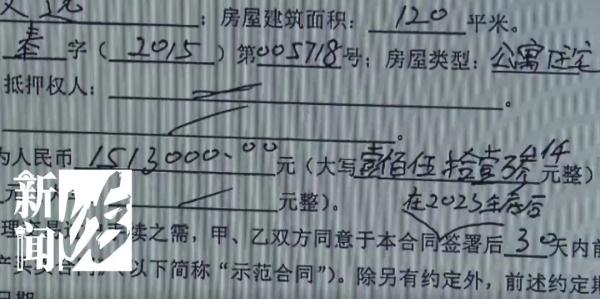 ；房屋建筑面积：120平米。
字（2015）第005718号；房屋类型：公寓住宅
抵押权人：。
。
为人民币1513000.00元（大写壹佰伍拾壹 元整）
元 元整）。在2023年 后
理 续之需，甲、乙双方同意于本合同签署后30天内前
以下简称“示范合同”）。除另有约定外，前述约定期
日期
新闻